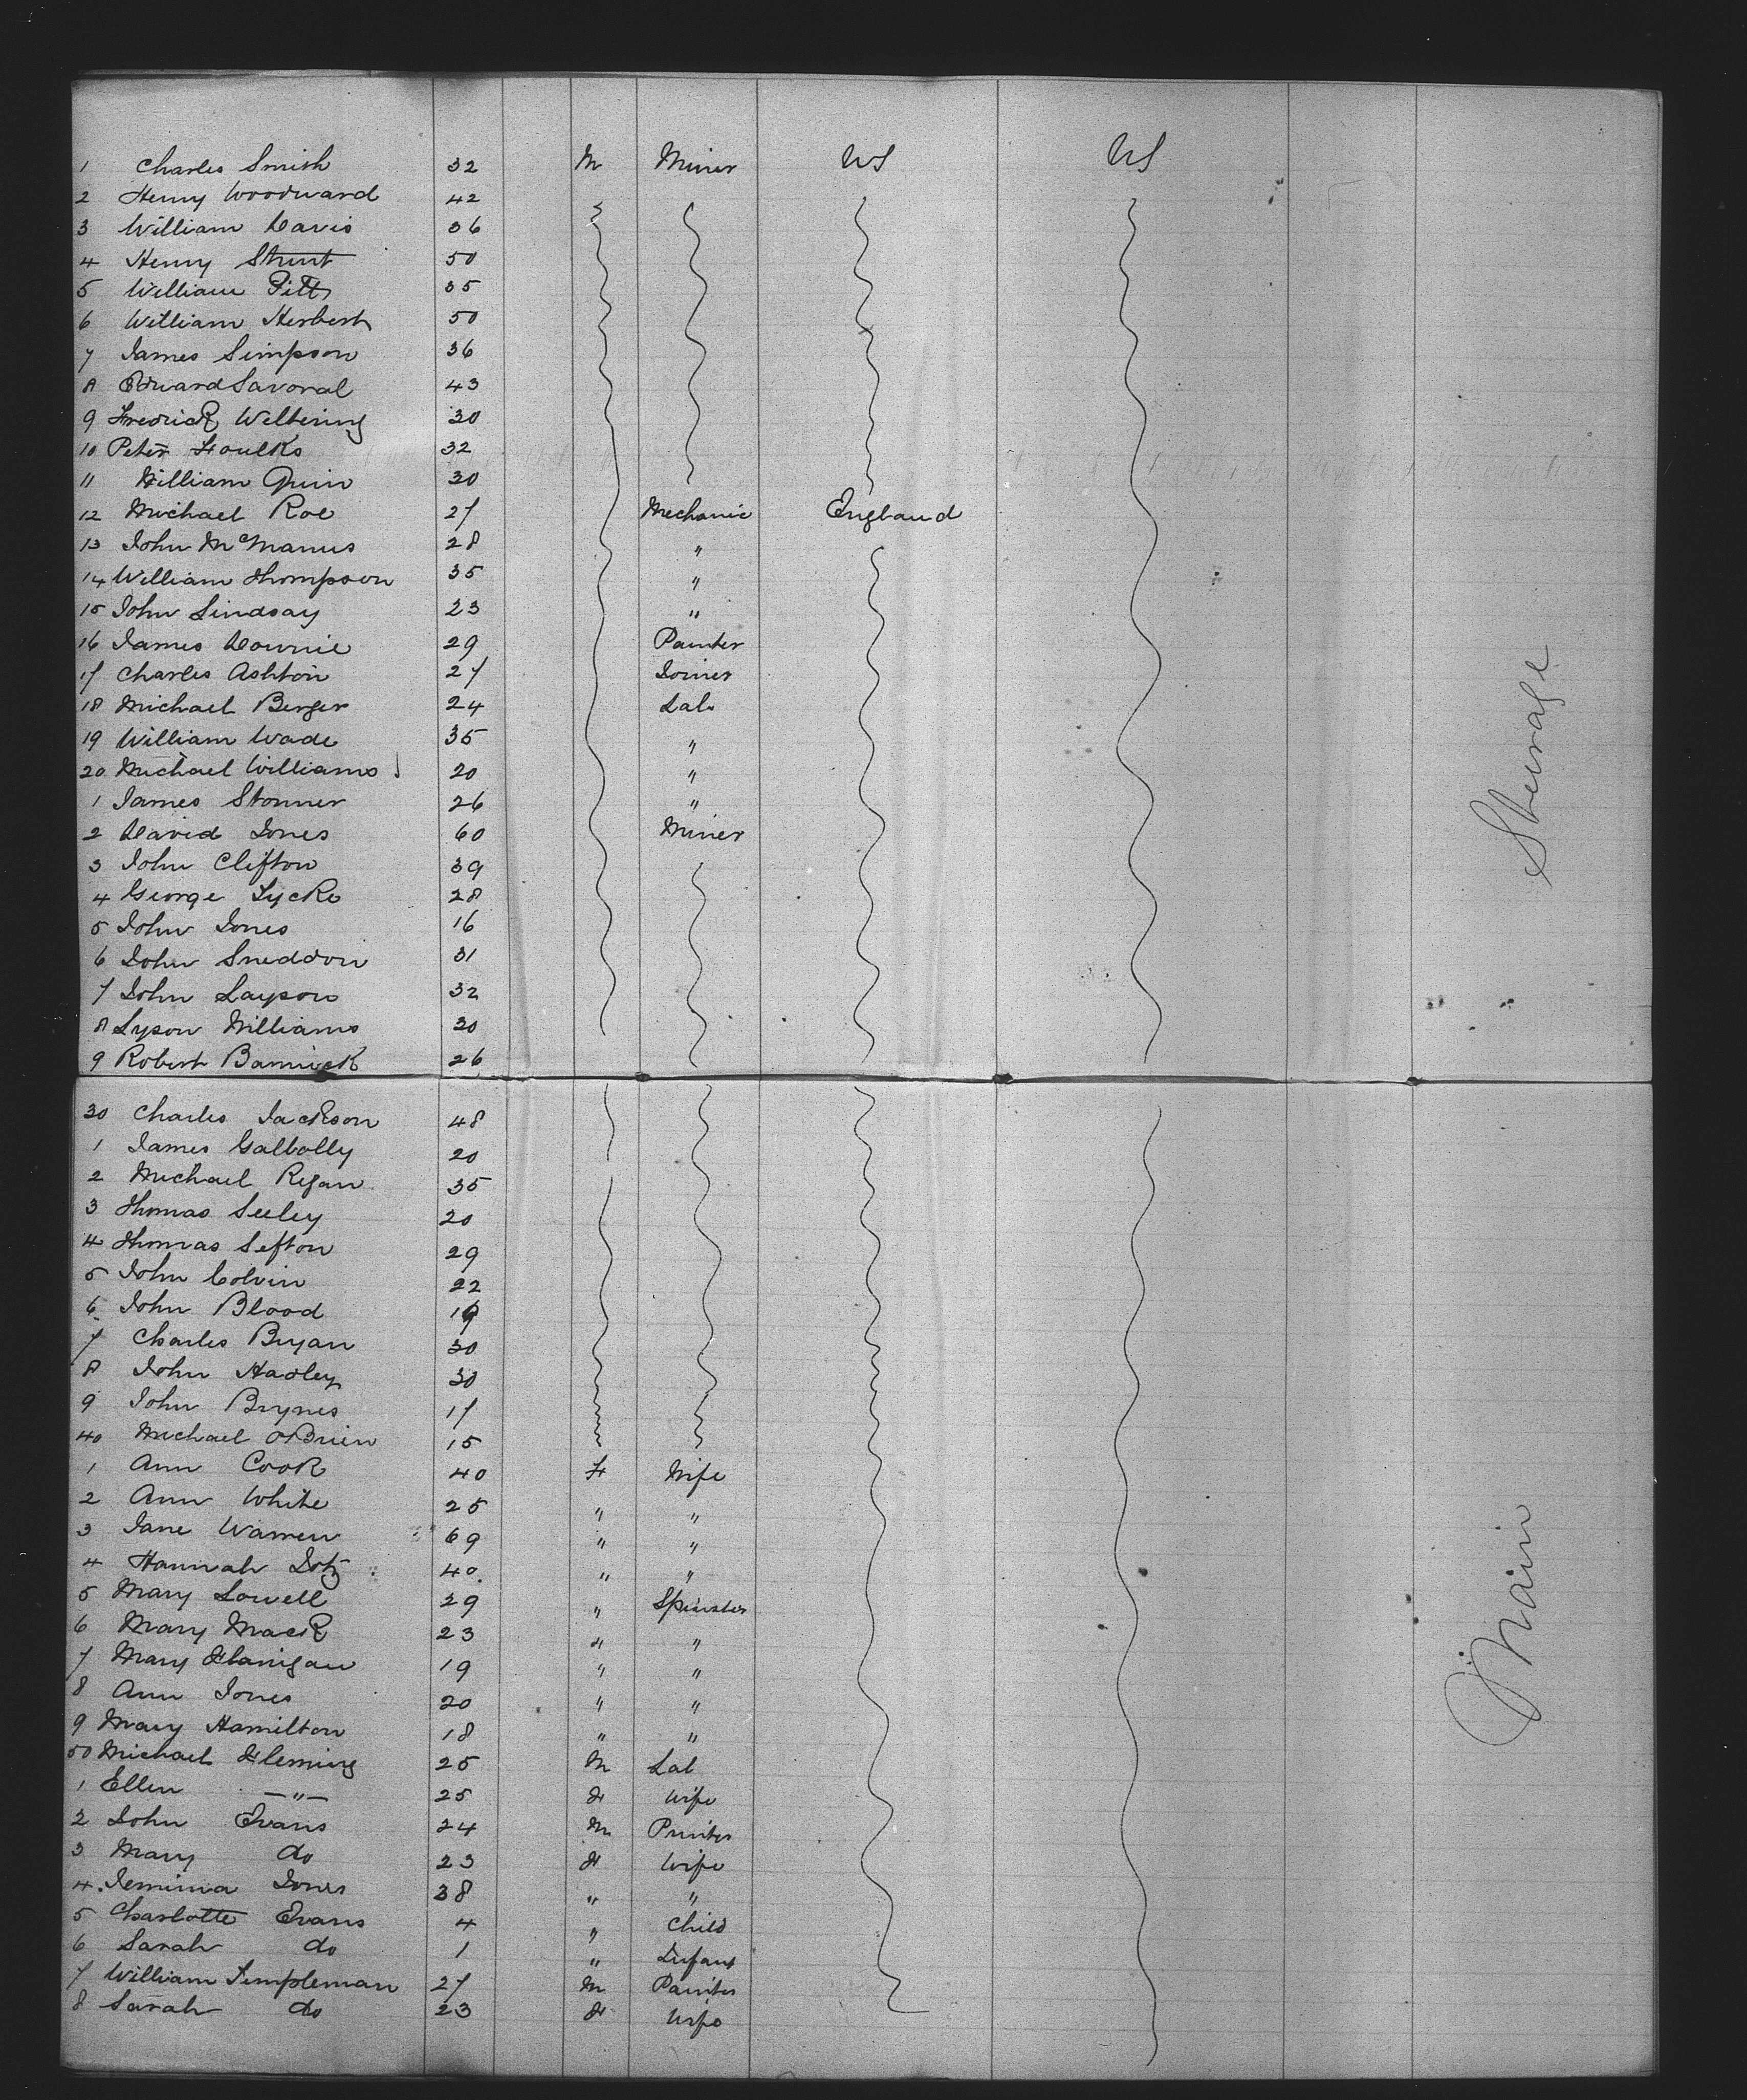 1 Charles Smith 32 M Miner US US
2 Henry Woodward 42
3 William Davis 36
4 Henry Strut 50
5 William Pitt 35
6 William Herbert 50
7 James Simpson 36
8 Edward Savoral 43
9 Fredrick Weltering 30
10 Peter Foulks 32
11 William Quin 30
12 Michael Roe 27 Mechanic England
13 John McManus 28 "
14 William Thompson 35 "
15 John Lindsay 23 "
16 James Downie 29 Painter
17 Charles Ashton 27 Joiner
18 Michael Berger 24 Lab
19 William Wade 35 "
20 Michael Williams 20 "
1 James Stonner 26 "
2 David Jones 60 Miner
3 John Clifton 39
4 George Lycke 28
5 John Jones 16
6 John Sneddon 31
7 John Layson 32
8 Lyson Williams 30
9 Robert Banwick 26
30 Charles Jackson 48
1 James Galbally 20
2 Michael Regan 35
3 Thomas Seeley 20
4 Thomas Sefton 29
5 John Colvin 22
6 John Blood
7 Charles Bryan 30
8 John Hadley 30
9 John Brynes 17
40 Michael OBrien 15
1 Ann Cook 40 F Wife
2 Ann White 25 " "
3 Jane Warren 69 " "
4 Hannah 40 " "
5 Mary Lowell 29 " Spinster
6 Mary Mack 23 " "
7 Mary Flanigan 19 " "
8 Ann Jones 20 " "
9 Mary Hamilton 18 " "
50 Michael Fleming 25 M Lab
1 Ellen —"— 25 F Wife
2 John Evans 24 M Printer
3 Mary do 23 F Wife
4 Jemima Jones 38 " "
5 Charlotte Evans 4 " Child
6 Sarah do 1 " Infant
7 William Templeman 27 M Painter
8 Sarah do 23 F Wife
Steerage
Main